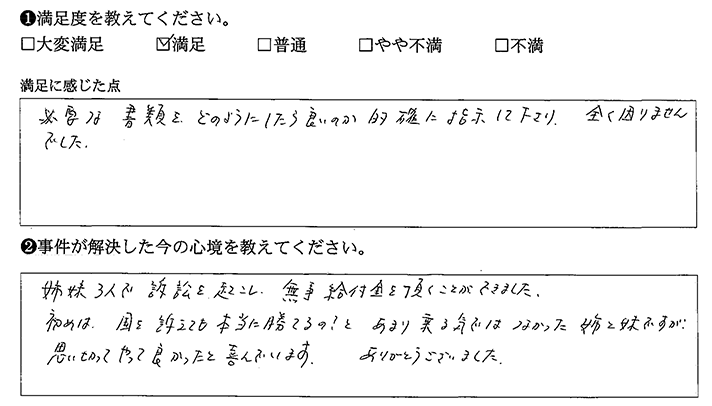 ❶満足度を教えてください。
□大変満足 ☑満足 □普通 □やや不満 □不満
満足に感じた点
必要な書類を、どのようにしたら良いのか 的確に指示して下さり、全く困りません
でした。
❷事件が解決した今の心境を教えてください。
姉妹3人で訴訟を起こし、無事給付金を頂くことができました。
初めは、国を訴えても本当に勝てるの?と あまり乗る気ではなかった姉と妹ですが、
思い切ってやって良かったと喜んでいます。 ありがとうございました。